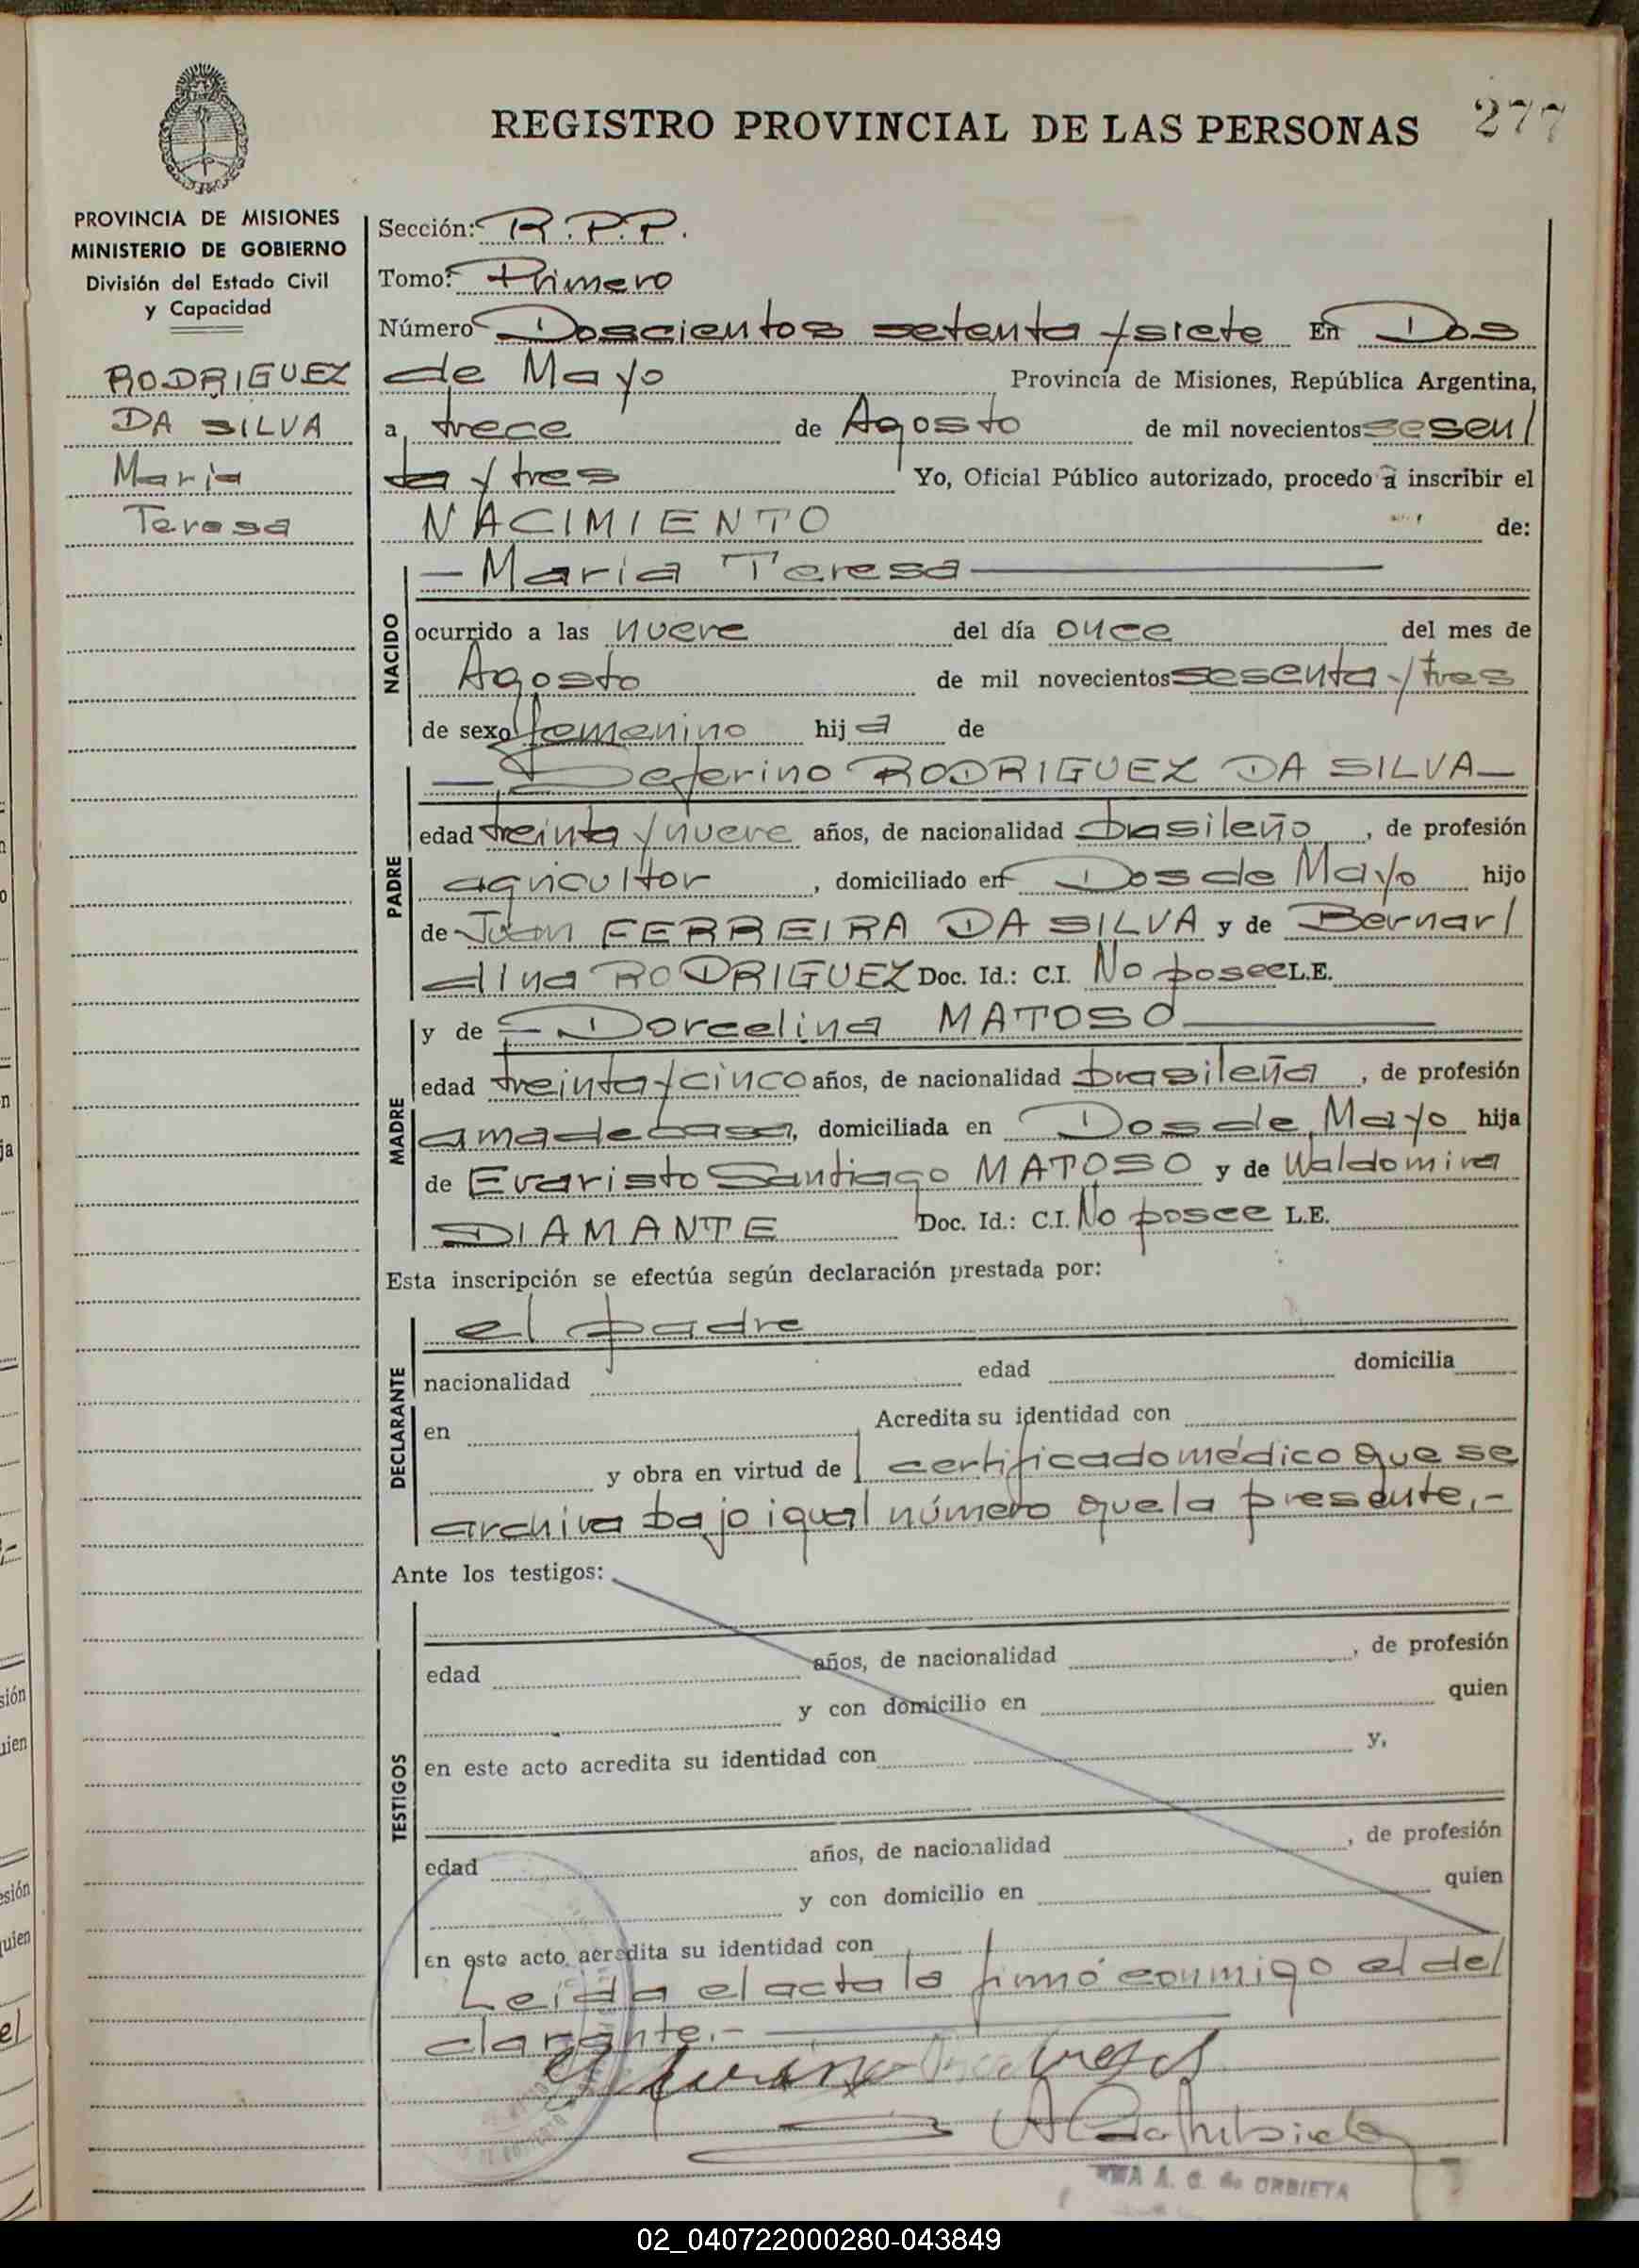 REGISTRO PROVINCIAL DE LAS PERSONAS 277
PROVINCIA DE MISIONES
MINISTERIO DE GOBIERNO
División del Estado Civil
y Capacidad
RODRIGUEZ
DA SILVA
María
Teresa
Sección: R.P.P.
Tomo: Primero
Número Doscientos setenta y siete En Dos
de Mayo Provincia de Misiones, República Argentina,
a trece de Agosto de mil novecientos sesen/
ta y tres Yo, Oficial Público autorizado, procedo a inscribir el
NACIMIENTO de:
NACIDO
— María Teresa —
ocurrido a las nueve del día once del mes de
Agosto de mil novecientos sesenta y tres
de sexo femenino hij a de
PADRE
— Seferino RODRIGUEZ DA SILVA —
edad treinta y nueve años, de nacionalidad brasileño, de profesión
agricultor, domiciliado en Dos de Mayo hijo
de Juan FERREIRA DA SILVA y de Bernar/
dina RODRIGUEZ Doc. Id.: C.I. No posee L.E.
MADRE
y de — Dorcelina MATOSO —
edad treinta y cinco años, de nacionalidad brasileña, de profesión
ama de casa, domiciliada en Dos de Mayo hija
de Evaristo Santiago MATOSO y de Waldomira
DIAMANTE Doc. Id.: C.I. No posee L.E.
Esta inscripción se efectúa según declaración prestada por:
DECLARANTE
el padre
nacionalidad edad domicilia
en Acredita su identidad con
y obra en virtud de l certificado médico que se
archiva bajo igual número que la presente.-
Ante los testigos:
TESTIGOS
edad años, de nacionalidad , de profesión
y con domicilio en quien
en este acto acredita su identidad con y,
edad años, de nacionalidad , de profesión
y con domicilio en quien
en este acto acredita su identidad con
Leída el acta la firmó conmigo el de/
clarante.-
A. C. de ORBIETA
02_040722000280-043849